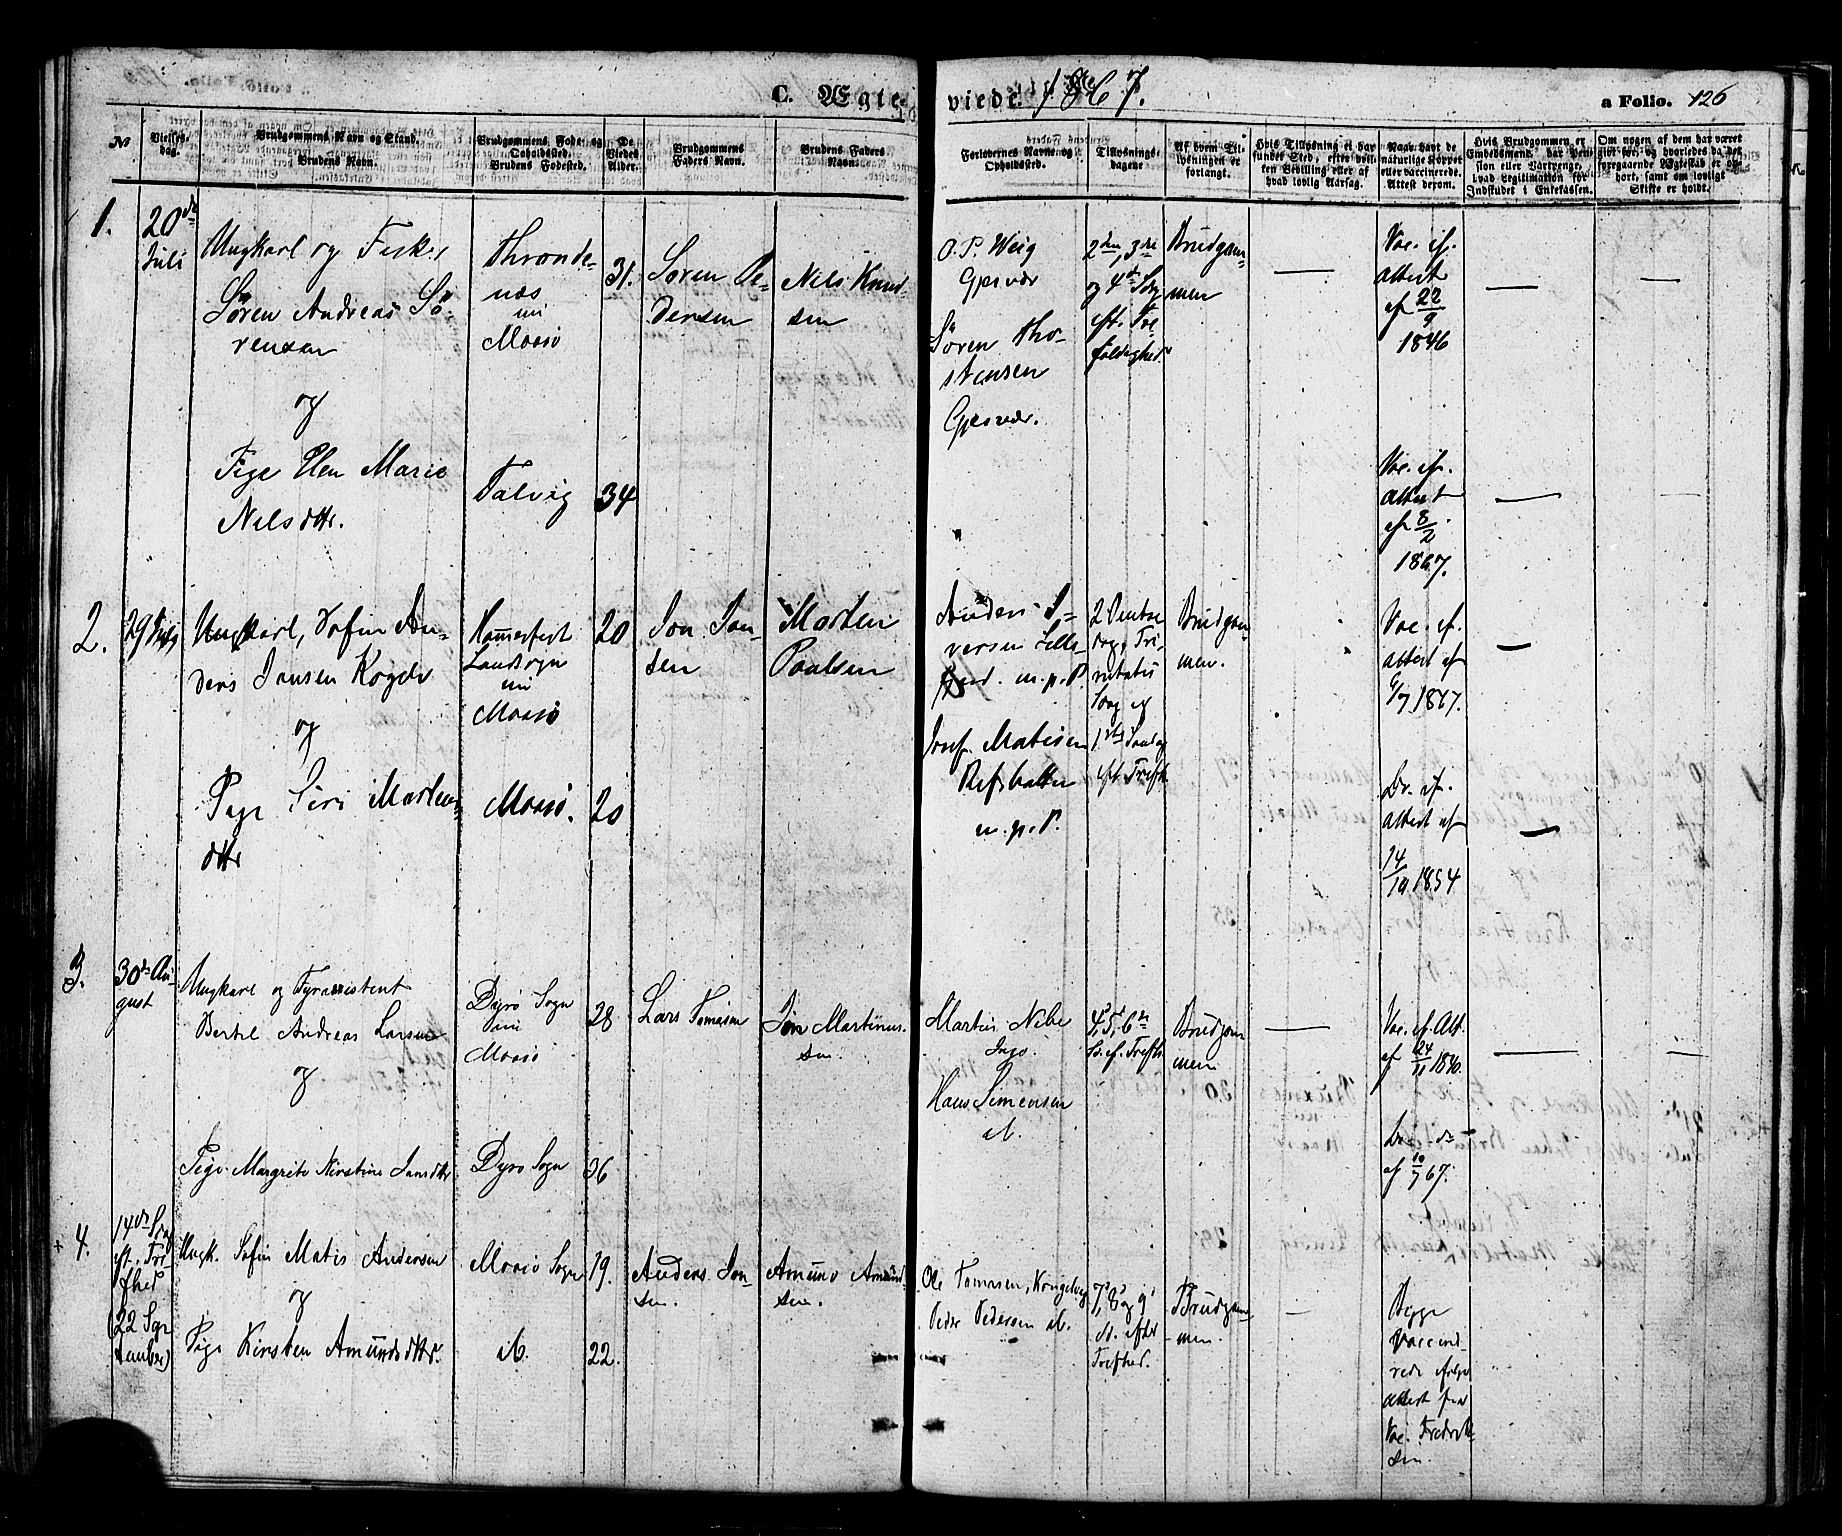 C. Ægte-
viede. 1867.
a Folio. 126
№
Vielses-
dag.
Brudgommens Navn og Stand.
Brudens Navn.
Brudgommens Føde- og
Opholdssted.
Brudens Fødested.
De
Viedes
Alder.
Brudgommens
Faders Navn.
Brudens Faders
Navn.
Forlovernes Navne og
Opholdssted.
Tillysnings-
dagene
Af hvem Til-
lysningen er
forlangt.
Hvis Tillysning ei har
fundet Sted, efter hvil-
ken Bevilling eller af
hvad lovlig Aarsag.
Naar havt de
naturlige Kopper
eller vaccinerede.
Attest derom.
Hvis Brudgommen er
Embedsmand, har Pen-
sion eller Vartpenge,
hvad Legitimation for
Indskudet i Enkekassen.
Om nogen af dem har været
gift før, og hvorledes da det
foregaaende Ægteskab er op-
hørt, samt om lovligt
Skifte er holdt.
1.
20de
Juli
Ungkarl og Fisker
Søren Andreas Sö-
rensen
og
Pige Elen Marie
Nilsdttr.
Thronde-
næs
nu
Maasö
Talvig
31.
34
Søren Pe-
dersen
Nils Knud-
sen
O. P. Weig
Gjesvær
Sören Tho-
stensen
Gjesvær.
2den, 3die
og 4de Søg
eft. Tre
foldighed.
Brudgom-
men
Vac. if.
attest
af 22/9
1846
Vac. if.
attest
af 8/2
1867.
2.
29 Juli
Ungkarl, Søfin An-
ders Jonsen Kogdv
og
Pige Siri Marten
dttr
Hammerfest
Landsogn
nu
Maasö
Maasö.
20
20
Jon Jon-
sen
Morten
Poalsen
Anders I-
versen Lille
fjord. m.p.P.
Josef Matisen
Refsbotten
m.p.P.
2 Pentse
dag, Tri-
nitatis
Søg og
1ste Søndag
eft. Trefh.
Brudgom-
men.
Vac. if.
attest af
6/7 1867.
Do. if.
attest af
14/10 1854
3.
30te Au-
gust
Ungkarl og Fyrassistent
Bertel Andreas Larsen
og
Pige Margrete Kirstine Jonsdttr
Dyrø Sogn
nu
Maasö
Dyrø Sogn
28
36
Lars Tomasen
Jon Martinus-
sen.
Martin Nebe
Ingø.
Hans Simensen
d.
4, 5, 6te
S. ef. Trefh.
Brudgom-
men
Vac. if. Att.
af 24/11 1840.
Do. do
af 10/7 67.
4.
14de Søg
eft. Tre-
fhed
(22 Sep-
tember)
Ungk. Søfin Matis Andersen
og
Pige Kirsten Amundsdttr.
Maasö Sogn
d.
19.
22.
Anders Jon-
sen.
Amund Amund-
sen.
Ole Tomasen, Kongelvig
Peder Pedersen d.
7, 8 og 9
S. efter
Trefhed.
Brudgom-
men.
Begge
vaccine-
rede ifølge
attest fra
Vac. Fredrik-
sen.